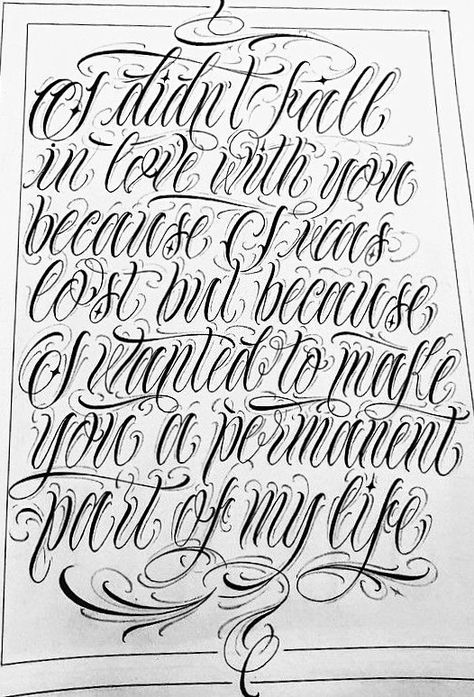 I didn't fall
in love with you
because I was
lost but because
I wanted to make
you a permanent
part of my life